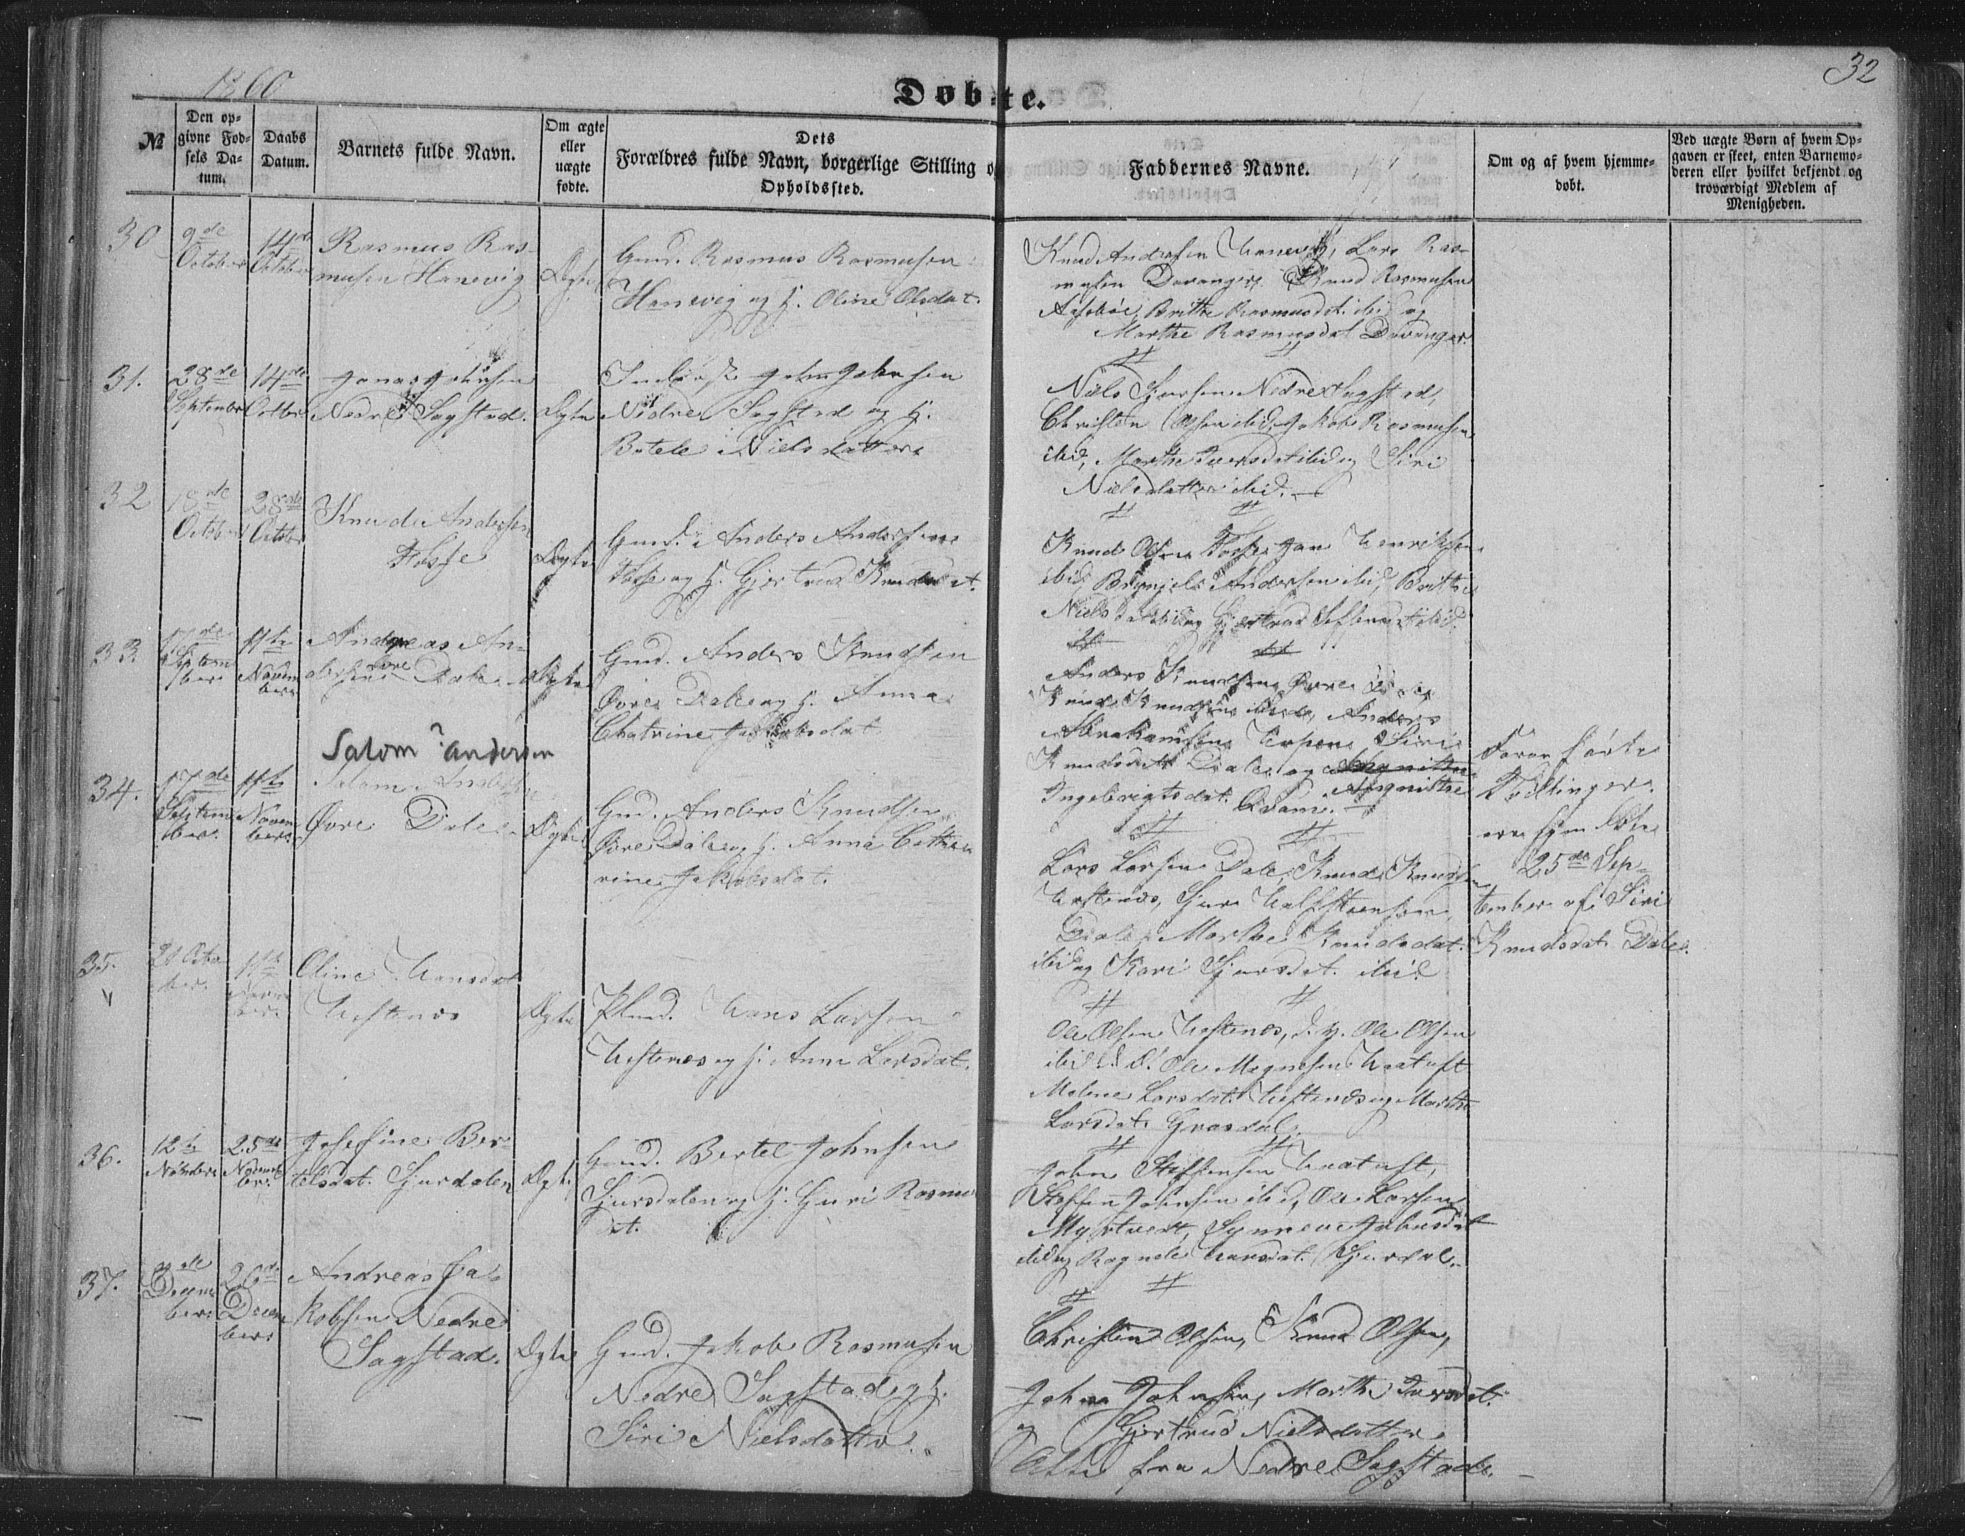 1860
32
Døbte.
№
Den op-
givne Fød-
sels Da-
tum.
Daabs
Datum.
Barnets fulde Navn.
Om ægte
eller
uægte
fødte.
Dets
Forældres fulde Navn, borgerlige Stilling o
Opholdssted.
Faddernes Navne.
Om og af hvem hjemme-
døbt.
Ved uægte Børn af hvem Op-
gaven er skeet, enten Barnemo-
deren eller hvilket bekjendt og
troværdigt Medlem af
Menigheden.
30
9de
October
14de
October
Rasmus Ras-
musen Hanevig
Ægte
Gmd. Rasmus Rasmusen
Hanevig og H. Oline Olsdat.
Knud Andersen Hanevig, Lars Ras-
musen Davanger, Knud Rasmusen
Brithe Rasmusdt. ibid og
Marthe Rasmusdat Davanger
31.
28de
September
14de
Octbr
Jonas Johnsen
Nedre Sagstad.
Ægte
John Johnsen
Nedre Sagstad og H.
Botele Nielsdatter
Niels Nedre Sagstad,
Christen Olsen ibid, Jakob Rasmusen
ibid, Marthe Iversdat ibid og Siri
Nielsdatter ibid.
32
18de
October
28de
Octbr
Knud Andersen
Fosse
Ægte
Gmd. Anders Andersen
Fosse og H. Gjertrud Knudsdat.
Knud Olsen Fosse, Jan Henriksen
ibid, Brynjel Andersen ibid, Brithe
Nielsdat ibid og Gjertrud ibid.
33.
17de
Septem-
ber
11te
Novem-
ber
Andreas An-
dersen Øvre Dale
Ægte
Gmd. Anders Knudsen
Øvre Dale og H. Anna
Chatrine Jakobsdat
Anders Knudsen Øvre Dale
Knud Knudsen ibid, Anders
Abrahamsen Siri
Knudsdat Dale og
Ingebrigtsdat. Adam.
34.
17de
Septem-
ber.
11te
Novem-
ber.
Salom ? Andersen
Salom Andersen
Øvre Dale
Ægte
Gmd. Anders Knudsen
Øvre Dale og H. Anna Cathe
rine Jakobsdat.
Lars Larsen Dale, Knud Knudsen
Hestenes,
Dale, Marthe Knudsdat.
ibid og Kari Sjursdat. ibid
Tvillinger
ere hjemdøbte
25de Sep-
tember af Siri
Knudsdat. Dale.
35.
21 Octo
ber.
11te
Novem
ber.
Oline Hansdat
Hestenes
Ægte
Hans Larsen
Hestenes og H. Anna Larsdat.
Ole Olsen Hestenes, d. y. Ole Olsen
ibid d. Æ. Ole Magnesen
Malene Larsdat. Hestenes og Marthe
Larsdat. Grasdal.
36.
12te
Novbr.
25de
Novem
ber.
Josefine Ber-
telsdat. Sjursdalen
Ægte
Gmd. Bertel Johnsen
Sjursdalen og H. Guri Rasmus
dt.
John Steffensen
Steffen Johnsen ibid, Ole Larsen
Myrtvedt, Synneve Johnsdat
ibid og Ragnele Hansdat.
37.
Decem
ber.
26de
Decem
ber
Andreas Ja-
kobsen Nedre
Sagstad.
Ægte
Gmd. Jakob Rasmusen
Nedre Sagstad og H.
Siri Nielsdatter.
Christen Olsen, Knud Olsen,
John Johnsen, Marthe Iversdat.
og Gjertrud Nielsdatter
Alle fra Nedre Sagstad.